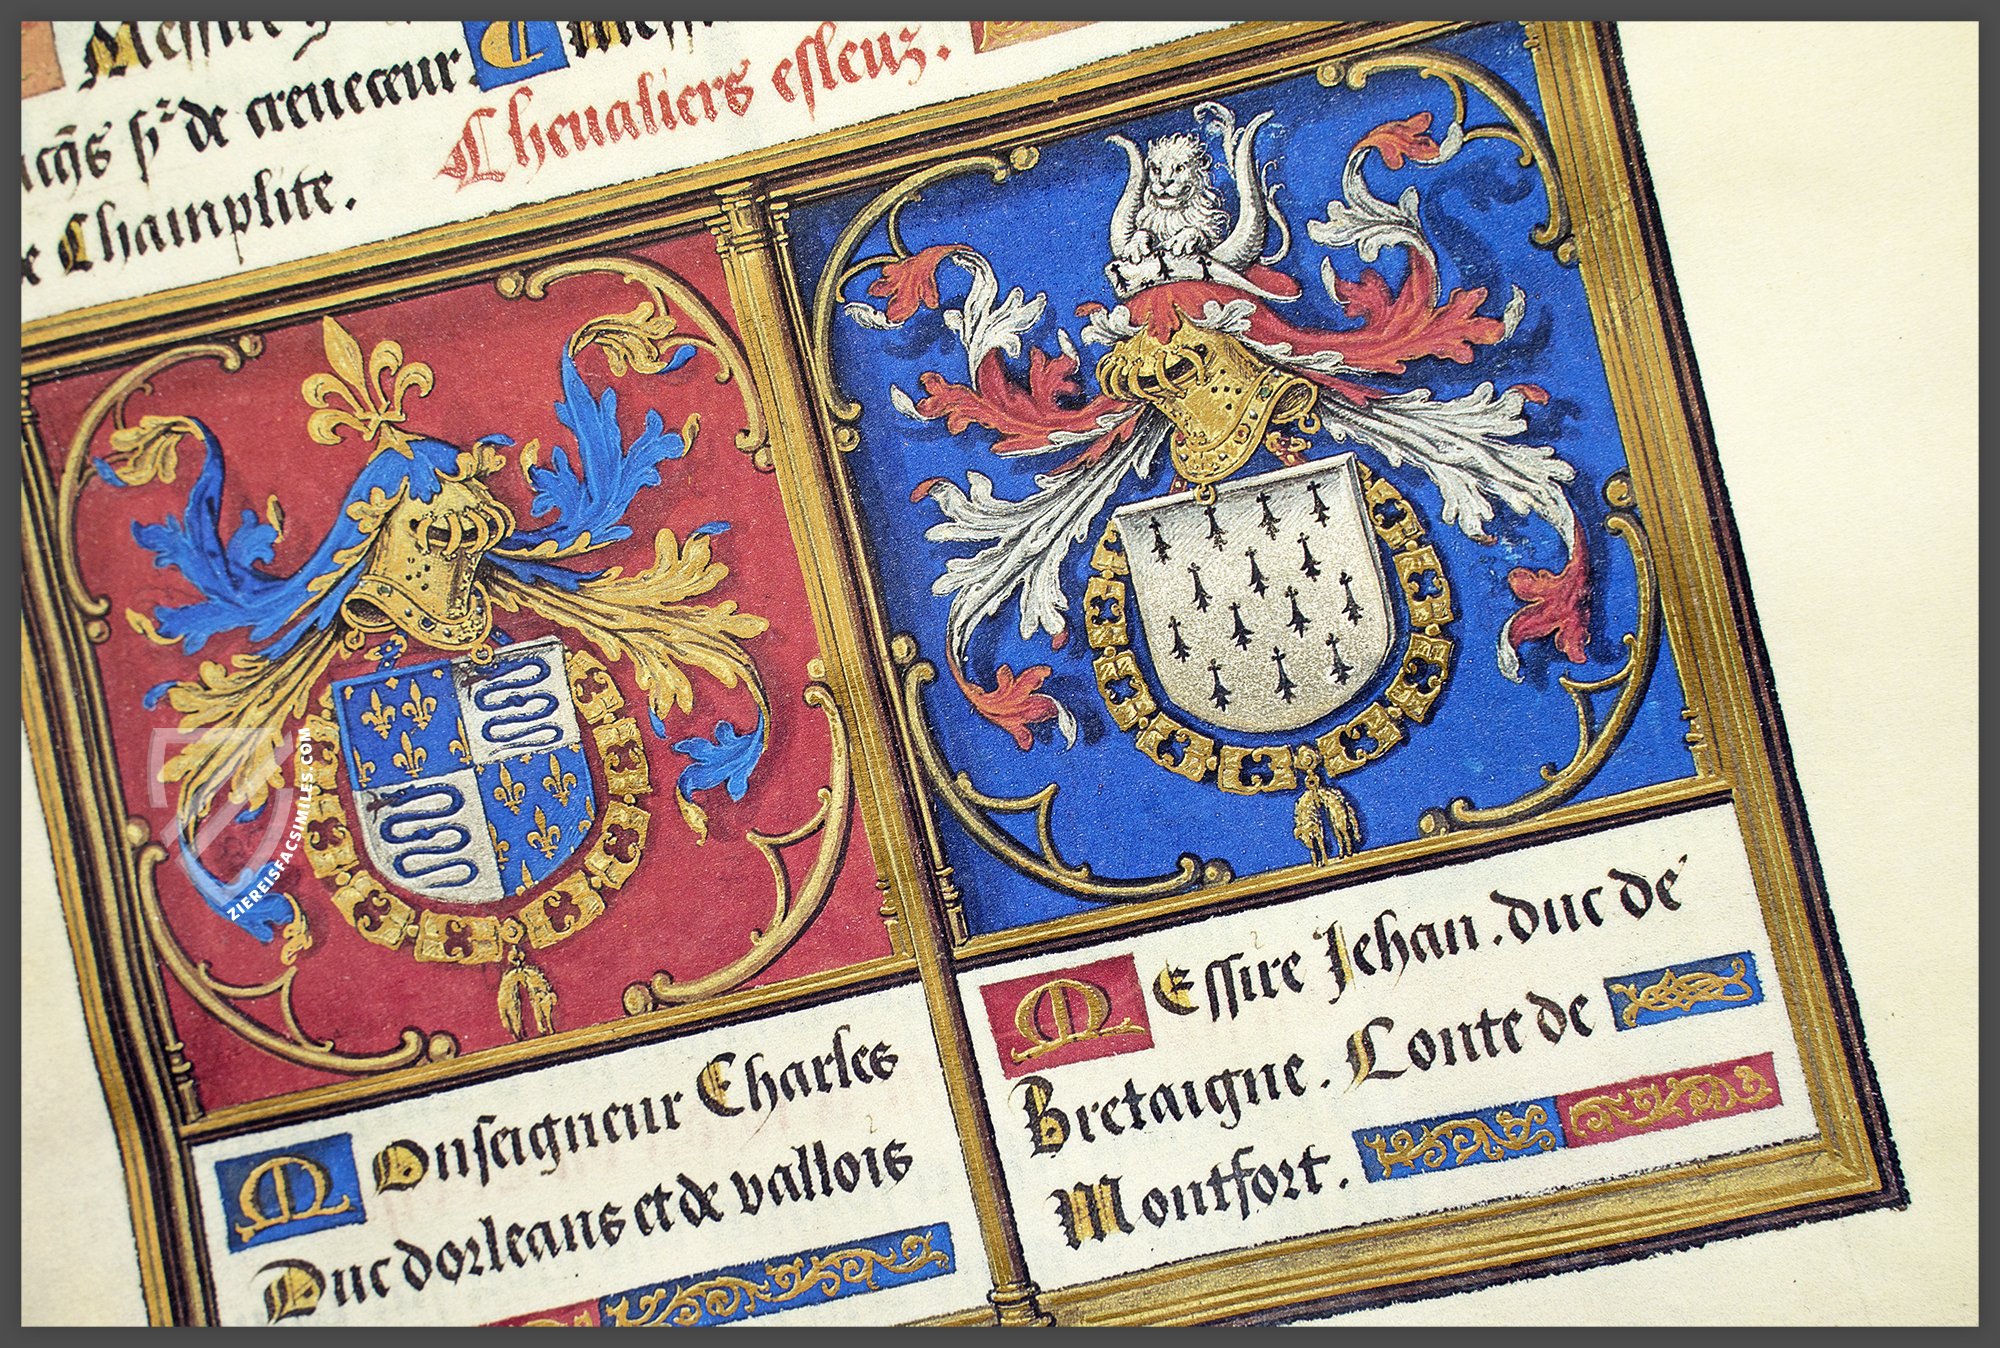 Messire
de creuecœur.
Champlite.
Cheualiers esleuz.
Monseigneur Charles
Duc dorleans et de vallois
MEssire Jehan . duc de
Bretaigne . Conte de
Montfort .
ZIEREISFACSIMILES.COM